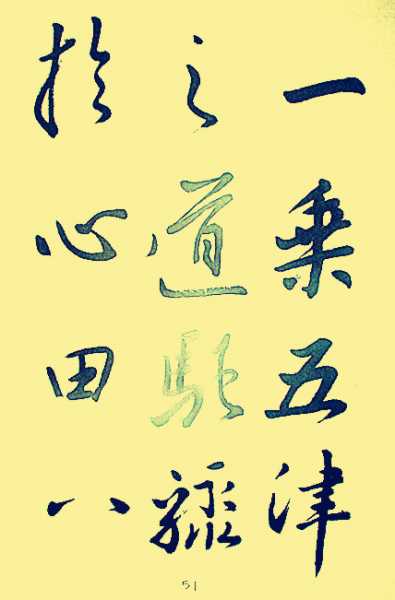 一乘五律
之道馳驟
於心田八
51